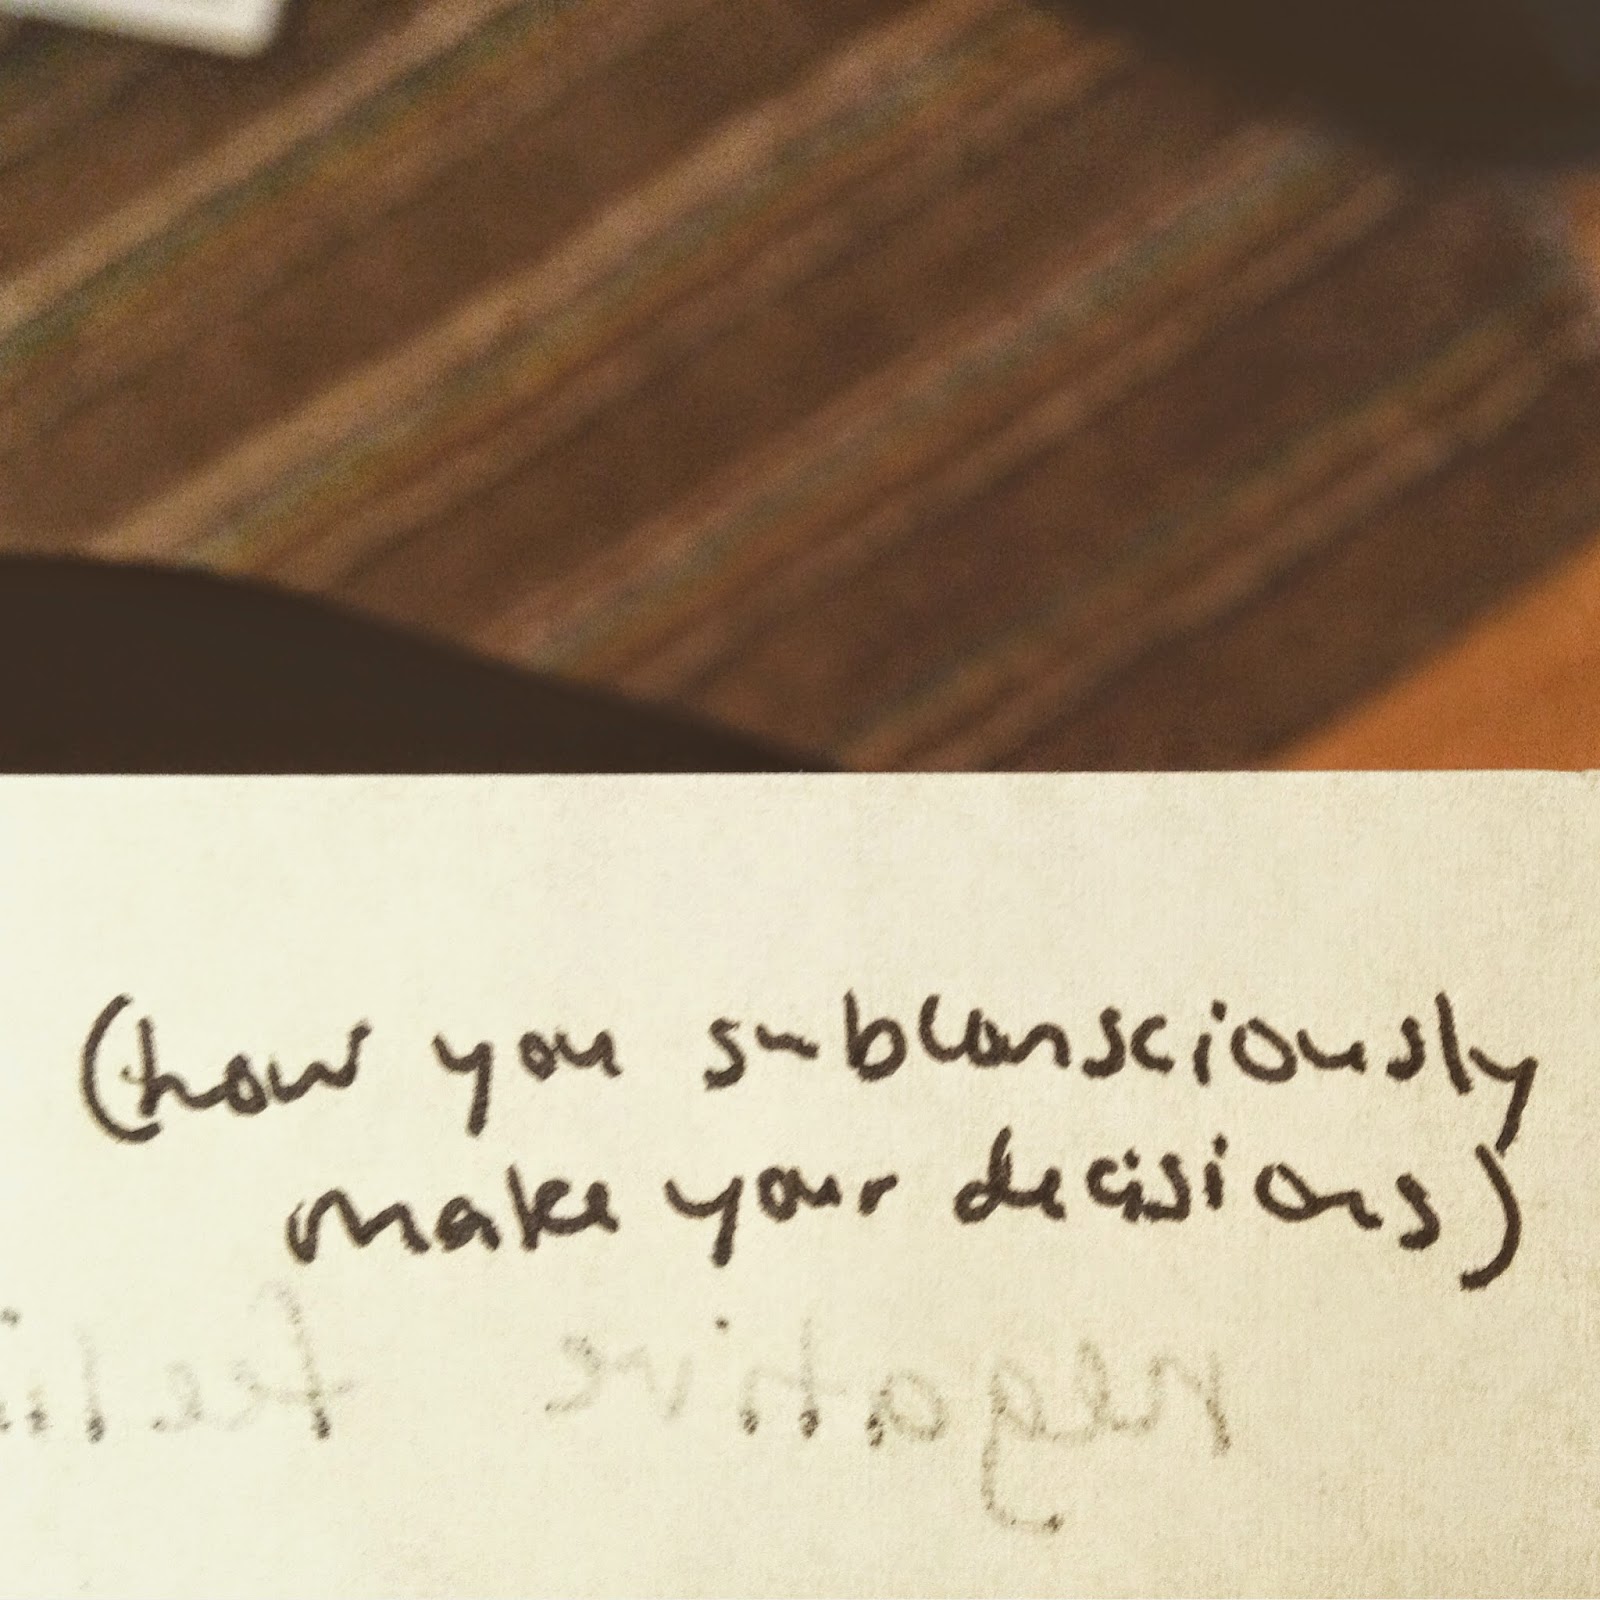 (how you subconsciously
make your decisions)
negative feeli